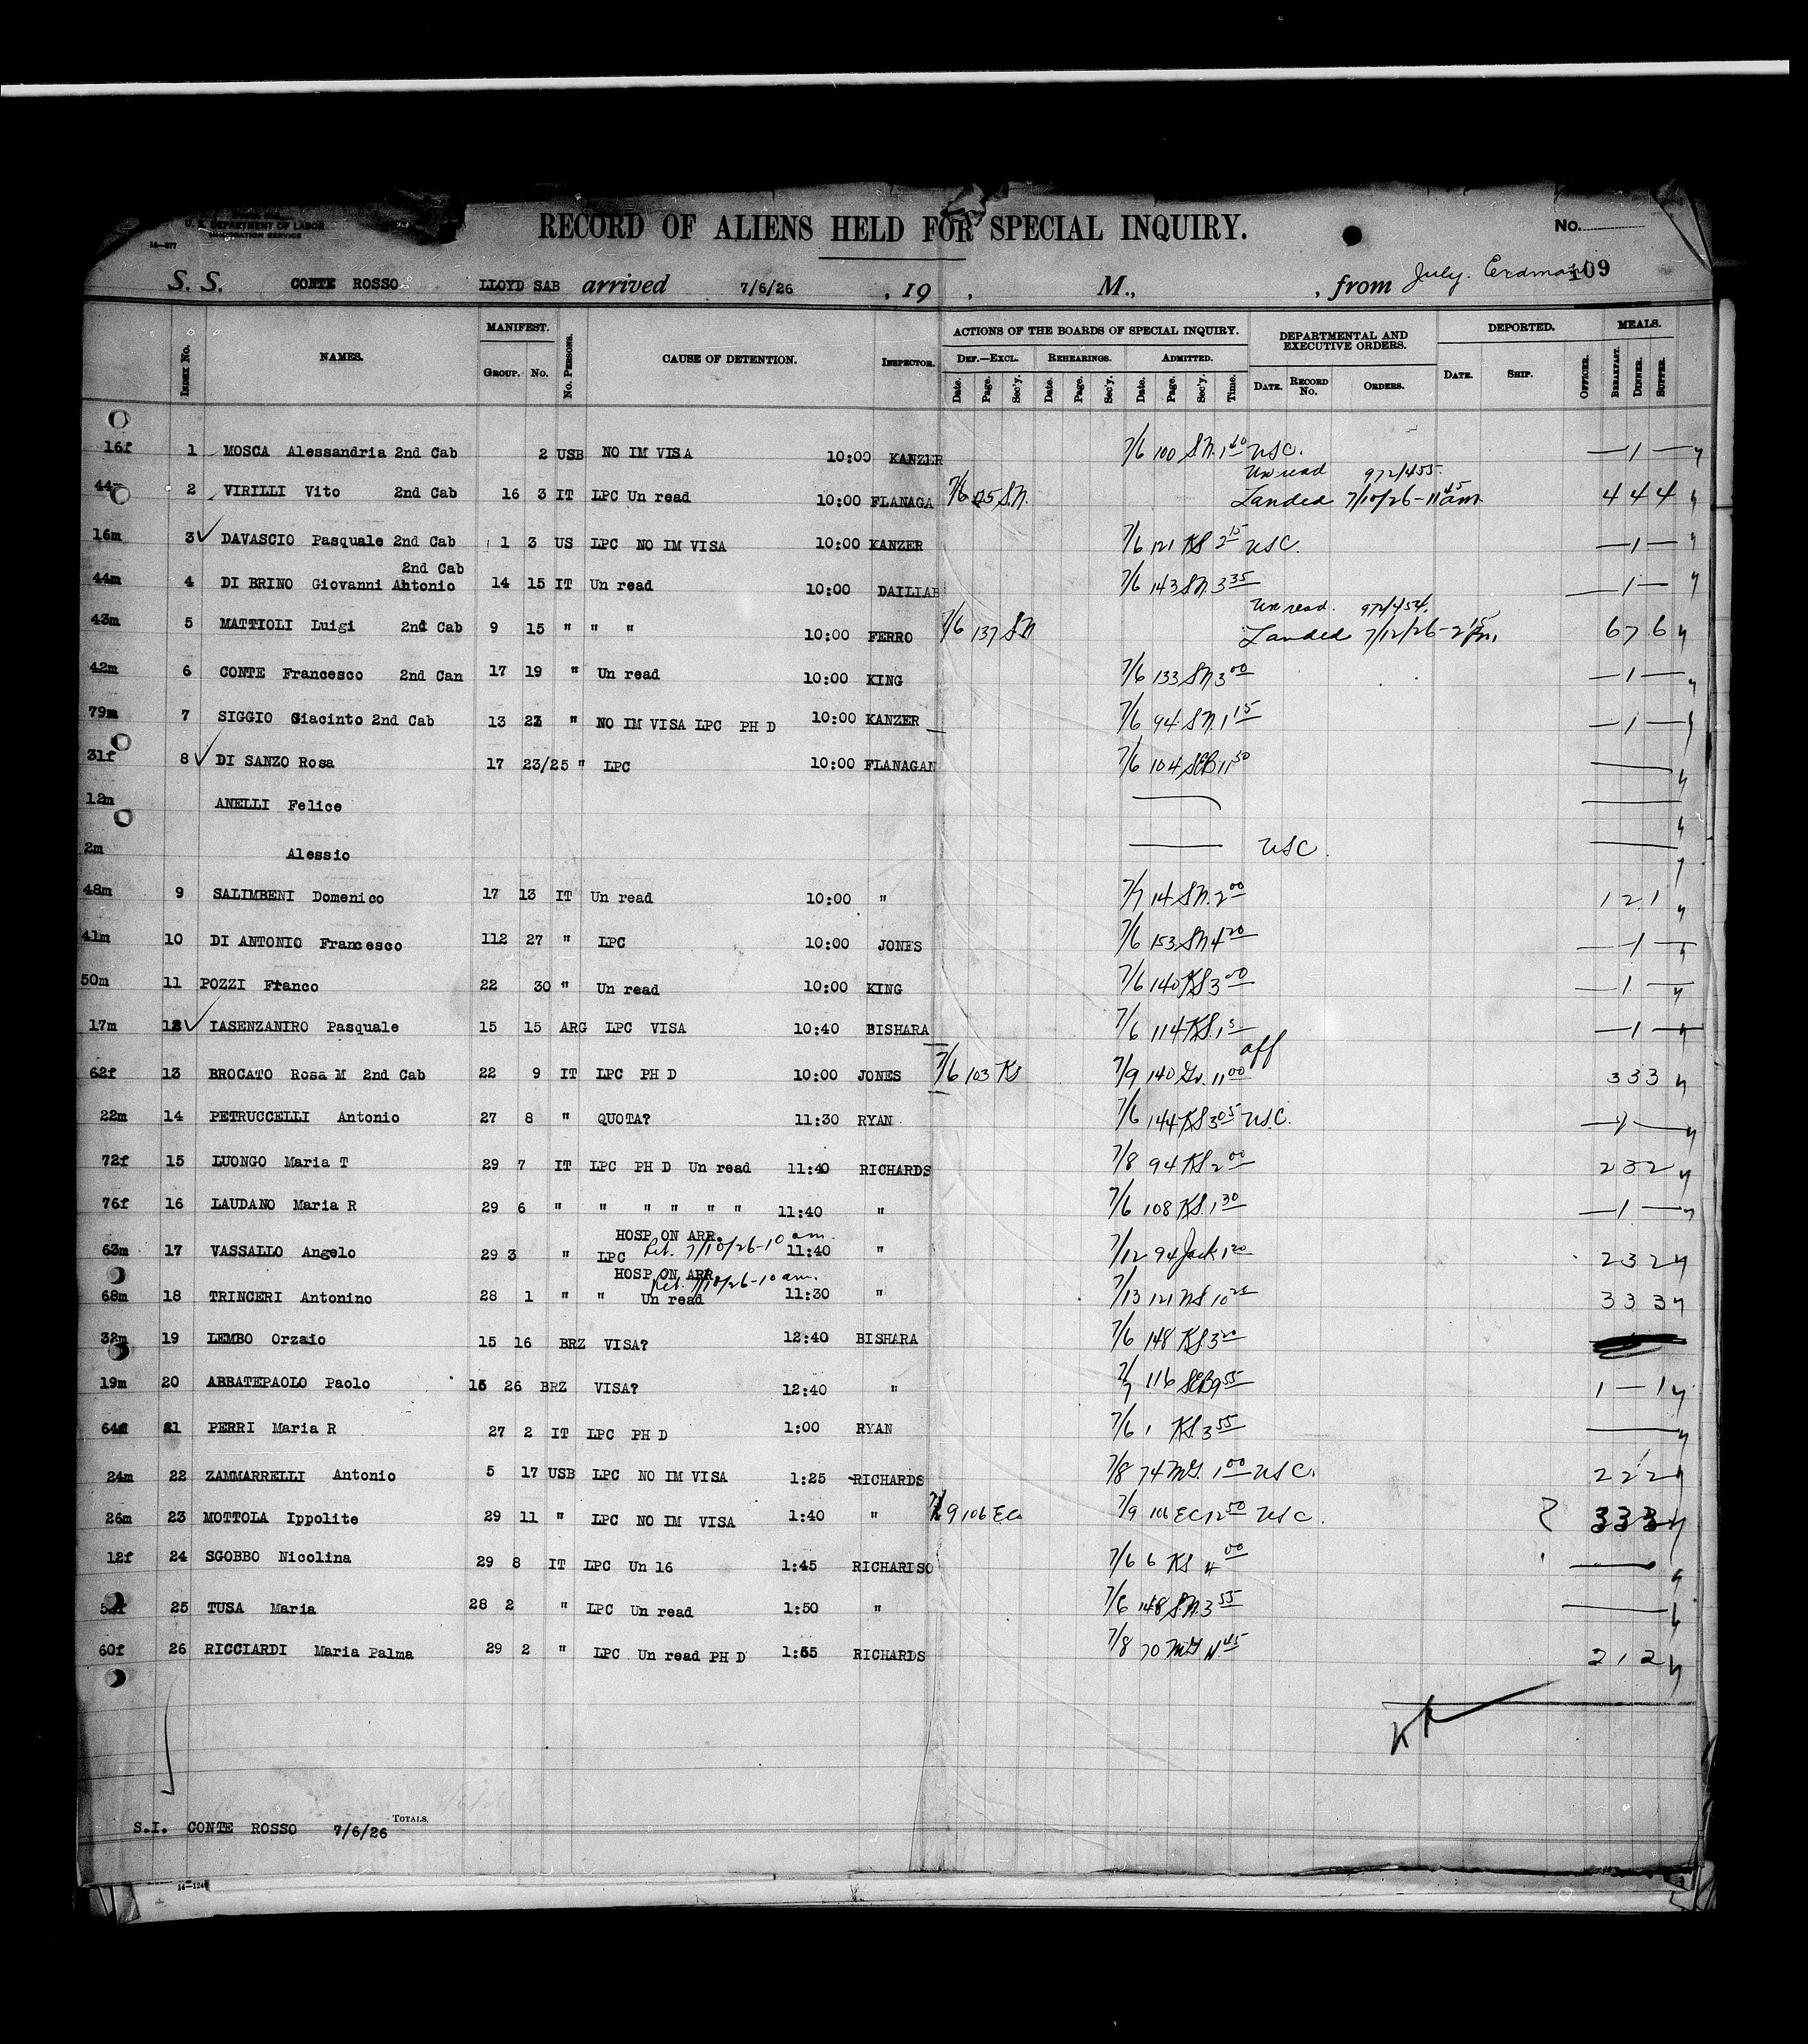 U. S. DEPARTMENT OF LABOR
IMMIGRATION SERVICE
14—577
RECORD OF ALIENS HELD FOR SPECIAL INQUIRY.
No.
S. S. CONTE ROSSO LLOYD SAB arrived 7/6/26 , 19 , M., , from July. Erdman 109
INDEX No. NAMES. MANIFEST. GROUP. No. No. PERSONS. CAUSE OF DETENTION. INSPECTOR. ACTIONS OF THE BOARDS OF SPECIAL INQUIRY. DEPARTMENTAL AND EXECUTIVE ORDERS. DEPORTED. MEALS.
DEF.—EXCL. REHEARINGS. ADMITTED.
Date. Page. Sec'y. Date. Page. Sec'y. Date. Page. Sec'y. Time. DATE. RECORD No. ORDERS. DATE. SHIP. OFFICER. BREAKFAST. DINNER. SUPPER.
16f 1 MOSCA Alessandria 2nd Cab 2 USB NO IM VISA 10:00 KANZER 7/6 100 SN. 1 40 USC. — 1 —
Un read 972/455
2 VIRILLI Vito 2nd Cab 16 3 IT LPC Un read 10:00 FLANAGA 7/6 SN. Landed 7/10/26 - 11 45 am 4 4 4
16m 3 DAVASCIO Pasquale 2nd Cab 1 3 US LPC NO IM VISA 10:00 KANZER 7/6 121 KS 2 15 USC. — 1 —
2nd Cab
44m 4 DI BRINO Giovanni Antonio 14 15 IT Un read 10:00 DAILIAH 7/6 143 SN. 3 35 — 1 —
Un read. 972/454.
43m 5 MATTIOLI Luigi 2nd Cab 9 15 " " " 10:00 FERRO 7/6 137 SN Landed 7/12/26 - 2 15 Pm. 6 7 6
42m 6 CONTE Francesco 2nd Can 17 19 " Un read 10:00 KING 7/6 133 SN 3 00 — 1 —
79m 7 SIGGIO Giacinto 2nd Cab 13 23 " NO IM VISA LPC PH D 10:00 KANZER 7/6 94 SN. 1 15 — 1 —
31f 8 DI SANZO Rosa 17 23/25 " LPC 10:00 FLANAGAN 7/6 104 SCB 11 50
12m ANELLI Felice
2m Alessio USC.
48m 9 SALIMBENI Domenico 17 13 IT Un read 10:00 " 7/7 14 SN. 2 00 1 2 1
41m 10 DI ANTONIO Francesco 112 27 " LPC 10:00 JONES 7/6 153 SN 4 20 — 1 —
50m 11 POZZI Franco 22 30 " Un read 10:00 KING 7/6 140 KS 3 00 — 1 —
17m 12 IASENZANIRO Pasquale 15 15 ARG LPC VISA 10:40 BISHARA 7/6 114 KS. — 1 —
62f 13 BROCATO Rosa M 2nd Cab 22 9 IT LPC PH D 10:00 JONES 7/6 103 KS 7/9 140 Gr. 11 00 aff 3 3 3
22m 14 PETRUCCELLI Antonio 27 8 " QUOTA? 11:30 RYAN 7/6 144 KS 3 05 USC. — 1 —
72f 15 LUONGO Maria T 29 7 IT LPC PH D Un read 11:40 RICHARDS 7/8 94 KS. 2 00 2 3 2
76f 16 LAUDANO Maria R 29 6 " " " " " " 11:40 " 7/6 108 KS. 1 30 — 1 —
HOSP ON ARR.
63m 17 VASSALLO Angelo 29 3 " LPC Ret. 7/10/26-10 am. 11:40 " 7/12 94 Jack 1 20 2 3 2
HOSP ON ARR
Ret. 7/10/26-10 am.
68m 18 TRINCERI Antonino 28 1 " " Un read 11:30 " 7/13 121 NS 10 25 3 3 3
32m 19 LEMBO Orzaio 15 16 BRZ VISA? 12:40 BISHARA 7/6 148 KS. 3 20
19m 20 ABBATEPAOLO Paolo 15 26 BRZ VISA? 12:40 " 7/7 116 SCB 9 55 1 — 1
64f 21 PERRI Maria R 27 2 IT LPC PH D 1:00 RYAN 7/6 1 KS. 3 55
24m 22 ZAMMARRELLI Antonio 5 17 USB LPC NO IM VISA 1:25 RICHARDS 7/8 74 MG. 1 00 USC. 2 2 2
26m 23 MOTTOLA Ippolite 29 11 " LPC NO IM VISA 1:40 " 7/9 106 EC 7/9 106 EC 12 50 USC. 3 3 3
12f 24 SGOBBO Nicolina 29 8 IT LPC Un 16 1:45 RICHARDSO 7/6 6 KS 4 00
25 TUSA Maria 28 2 " LPC Un read 1:50 " 7/6 148 S.N. 3 55
60f 26 RICCIARDI Maria Palma 29 2 " LPC Un read PH D 1:55 RICHARDS 7/8 70 MG 11 45 2 1 2
TOTALS.
S.I. CONTE ROSSO 7/6/26